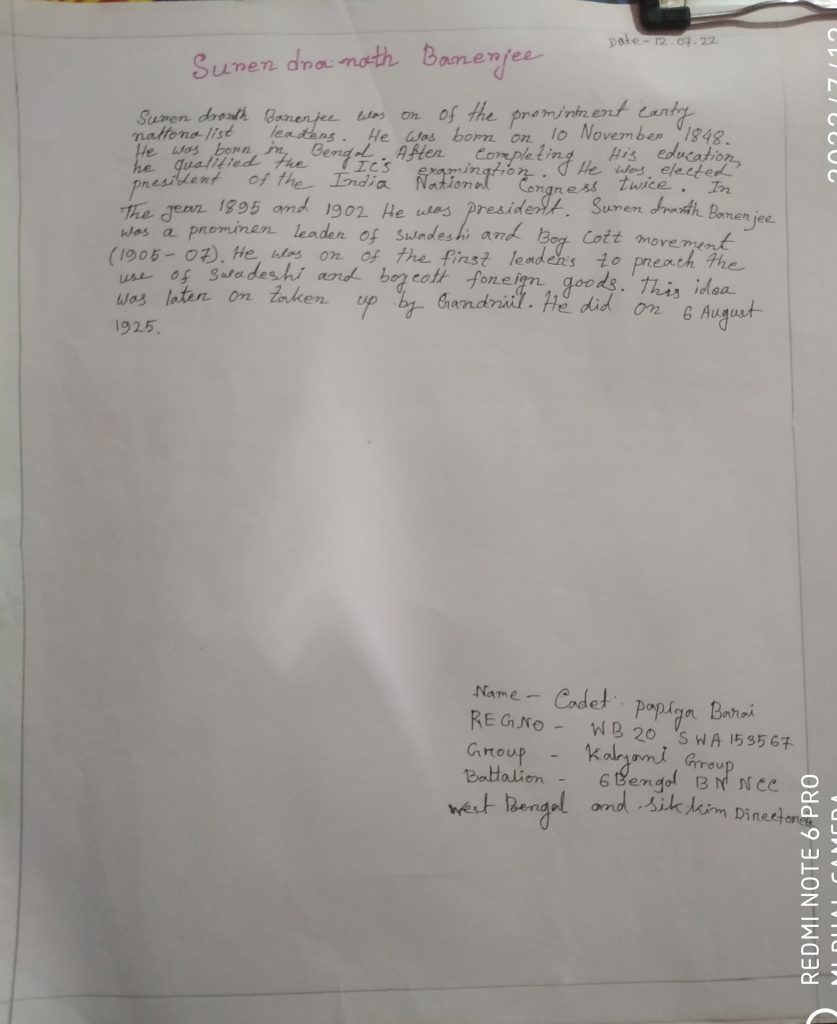 Date - 12.07.22
Surendranath Banerjee
Surendranth Banerjee was on of the promintnent early
nattonalist leaders. He was born on 10 November 1848.
He was born in Bengal. After completing His education,
he qualitied the ICS examination. He was elected
president of the India National Congress twice. In
The year 1895 and 1902 He was president. Surendranth Banerjee
was a prominen leader of Swadeshi and Boy Cott movement
(1905-07). He was on of the first leaders to preach the
use of swadeshi and boycott foreign goods. This idea
was later on taken up by
He did on 6 August
1925.
Name - Cadet papiya Barai
REG.NO - WB 20 SWA 153567
Group - Kalyani Group
Battalion - 6 Bengal BN NCC
west Bengal and sikkim
REDMI NOTE 6 PRO
MI DUAL CAMERA